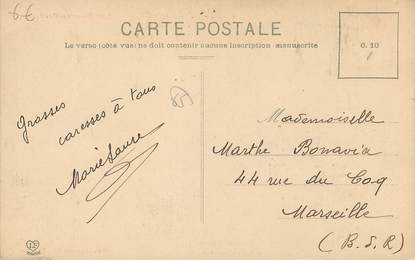 6€
CARTE POSTALE
Le verso (côté vue) ne doit contenir aucune inscription manuscrite
0.10
Grosses
caresses à tous
Marie Laure
85
Mademoiselle
Marthe Bonavia
44 rue du Coq
Marseille
(B.d.R)